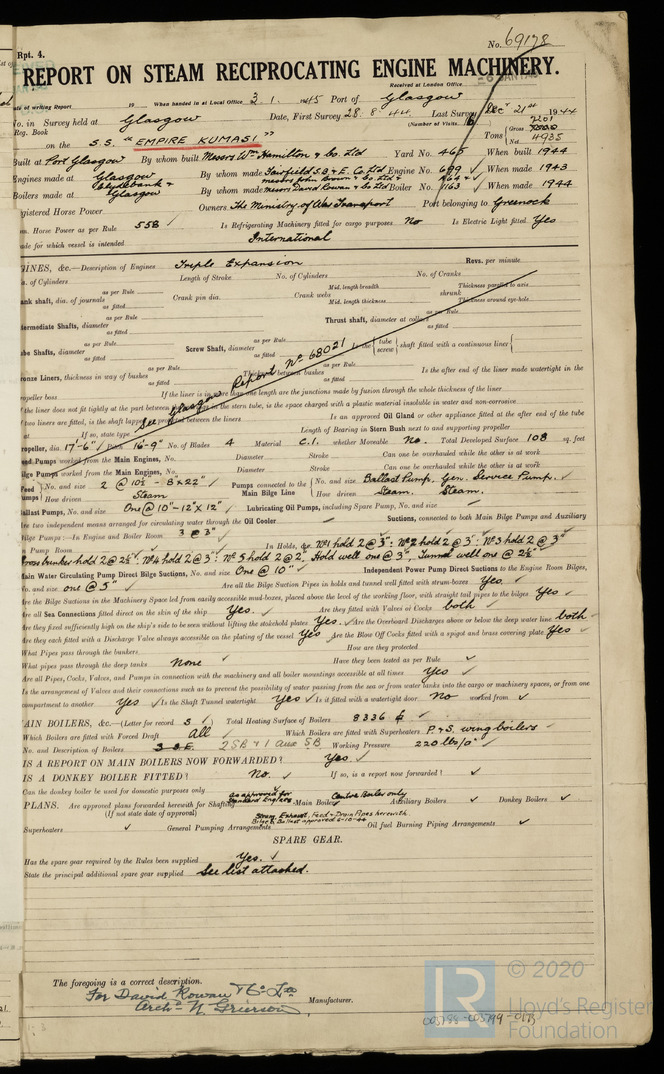 Rpt. 4.
No. 69178
REPORT ON STEAM RECIPROCATING ENGINE MACHINERY.
Received at London Office
ate of writing Report 19 When handed in at Local Office 3. 1. 1945 Port of Glasgow
No. in Survey held at Glasgow Date, First Survey 28. 8. 44 Last Survey Decr 21st 1944
Reg. Book (Number of Visits 16)
on the S.S. "EMPIRE KUMASI" Tons Gross 7201 Net 4935
Built at Port Glasgow By whom built Messrs Wm Hamilton & Co. Ltd Yard No. 465 When built 1944
Engines made at Glasgow By whom made Fairfield S.B. & E. Co Ltd Engine No. 699 When made 1943
Boilers made at Clydebank & Glasgow By whom made Messrs John Brown & Co. Ltd & Messrs David Rowan & Co Ltd Boiler No. 1163 When made 1944
egistered Horse Power Owners The Ministry of War Transport Port belonging to Greenock
om. Horse Power as per Rule 558 Is Refrigerating Machinery fitted for cargo purposes No Is Electric Light fitted Yes
ade for which vessel is intended International
GINES, &c.—Description of Engines Triple Expansion Revs. per minute
o. of Cylinders Length of Stroke No. of Cylinders No. of Cranks
ank shaft, dia. of journals as per Rule as fitted Crank pin dia. Crank webs Mid. length breadth Mid. length thickness shrunk Thickness parallel to axis Thickness around eye-hole
termediate Shafts, diameter as per Rule as fitted Thrust shaft, diameter at collars as per Rule as fitted
ube Shafts, diameter as per Rule as fitted Screw Shaft, diameter as per Rule as fitted Is the { tube screw } shaft fitted with a continuous liner {
See Glasgow Report No 68021
ronze Liners, thickness in way of bushes as per Rule as fitted Thickness between bushes as per Rule as fitted Is the after end of the liner made watertight in the
ropeller boss If the liner is in more than one length are the junctions made by fusion through the whole thickness of the liner
the liner does not fit tightly at the part between the bushes in the stern tube, is the space charged with a plastic material insoluble in water and non-corrosive
two liners are fitted, is the shaft lapped or protected between the liners Is an approved Oil Gland or other appliance fitted at the after end of the tube
at If so, state type Length of Bearing in Stern Bush next to and supporting propeller
ropeller, dia. 17'-6" Pitch 16'-9" No. of Blades 4 Material C.I. whether Moveable No. Total Developed Surface 108 sq. feet
eed Pumps worked from the Main Engines, No. Diameter Stroke Can one be overhauled while the other is at work
ilge Pumps worked from the Main Engines, No. Diameter Stroke Can one be overhauled while the other is at work
Feed Pumps { No. and size 2 @ 10½ - 8 x 22" How driven Steam Pumps connected to the Main Bilge Line { No. and size Ballast Pump, Gen. Service Pump. How driven Steam. Steam.
Ballast Pumps, No. and size One @ 10" - 12" x 12" Lubricating Oil Pumps, including Spare Pump, No. and size
Are two independent means arranged for circulating water through the Oil Cooler Suctions, connected to both Main Bilge Pumps and Auxiliary
Bilge Pumps:—In Engine and Boiler Room 3 @ 3"
Pump Room In Holds, &c. No 1 hold 2 @ 3": No 2 hold 2 @ 3": No 3 hold 2 @ 3"
Cross bunker hold 2 @ 2½": No 4 hold 2 @ 3": No 5 hold 2 @ 2". Hold well one @ 3". Tunnel well one @ 2½"
Main Water Circulating Pump Direct Bilge Suctions, No. and size One @ 10" Independent Power Pump Direct Suctions to the Engine Room Bilges,
No. and size one @ 5" Are all the Bilge Suction Pipes in holds and tunnel well fitted with strum-boxes Yes.
Are the Bilge Suctions in the Machinery Space led from easily accessible mud-boxes, placed above the level of the working floor, with straight tail pipes to the bilges Yes
Are all Sea Connections fitted direct on the skin of the ship Yes. Are they fitted with Valves or Cocks both
Are they fixed sufficiently high on the ship's side to be seen without lifting the stokehold plates Yes. Are the Overboard Discharges above or below the deep water line both
Are they each fitted with a Discharge Valve always accessible on the plating of the vessel Yes Are the Blow Off Cocks fitted with a spigot and brass covering plate Yes
What Pipes pass through the bunkers How are they protected
What pipes pass through the deep tanks None Have they been tested as per Rule
Are all Pipes, Cocks, Valves, and Pumps in connection with the machinery and all boiler mountings accessible at all times Yes
Is the arrangement of Valves and their connections such as to prevent the possibility of water passing from the sea or from water tanks into the cargo or machinery spaces, or from one
compartment to another Yes Is the Shaft Tunnel watertight Yes Is it fitted with a watertight door No worked from
AIN BOILERS, &c.—(Letter for record S) Total Heating Surface of Boilers 8336
Which Boilers are fitted with Forced Draft All Which Boilers are fitted with Superheaters P. & S. wing boilers
No. and Description of Boilers 3 S.E. 2 SB & 1 Aux SB Working Pressure 220 lbs/□"
IS A REPORT ON MAIN BOILERS NOW FORWARDED? Yes.
IS A DONKEY BOILER FITTED? No. If so, is a report now forwarded?
Can the donkey boiler be used for domestic purposes only
PLANS. Are approved plans forwarded herewith for Shafting as approved for Standard Engines Main Boilers Centre Boiler only Auxiliary Boilers Donkey Boilers
(If not state date of approval)
Superheaters General Pumping Arrangements Steam, Exhaust, Feed & Drain Pipes herewith Bilge & Ballast approved 6-10-44 Oil fuel Burning Piping Arrangements
SPARE GEAR.
Has the spare gear required by the Rules been supplied Yes.
State the principal additional spare gear supplied See list attached.
The foregoing is a correct description.
For David Rowan & Co. Ltd
Archd N. Grierson Manufacturer.
LR
© 2020
Lloyd's Register
Foundation
003788-003799-0173